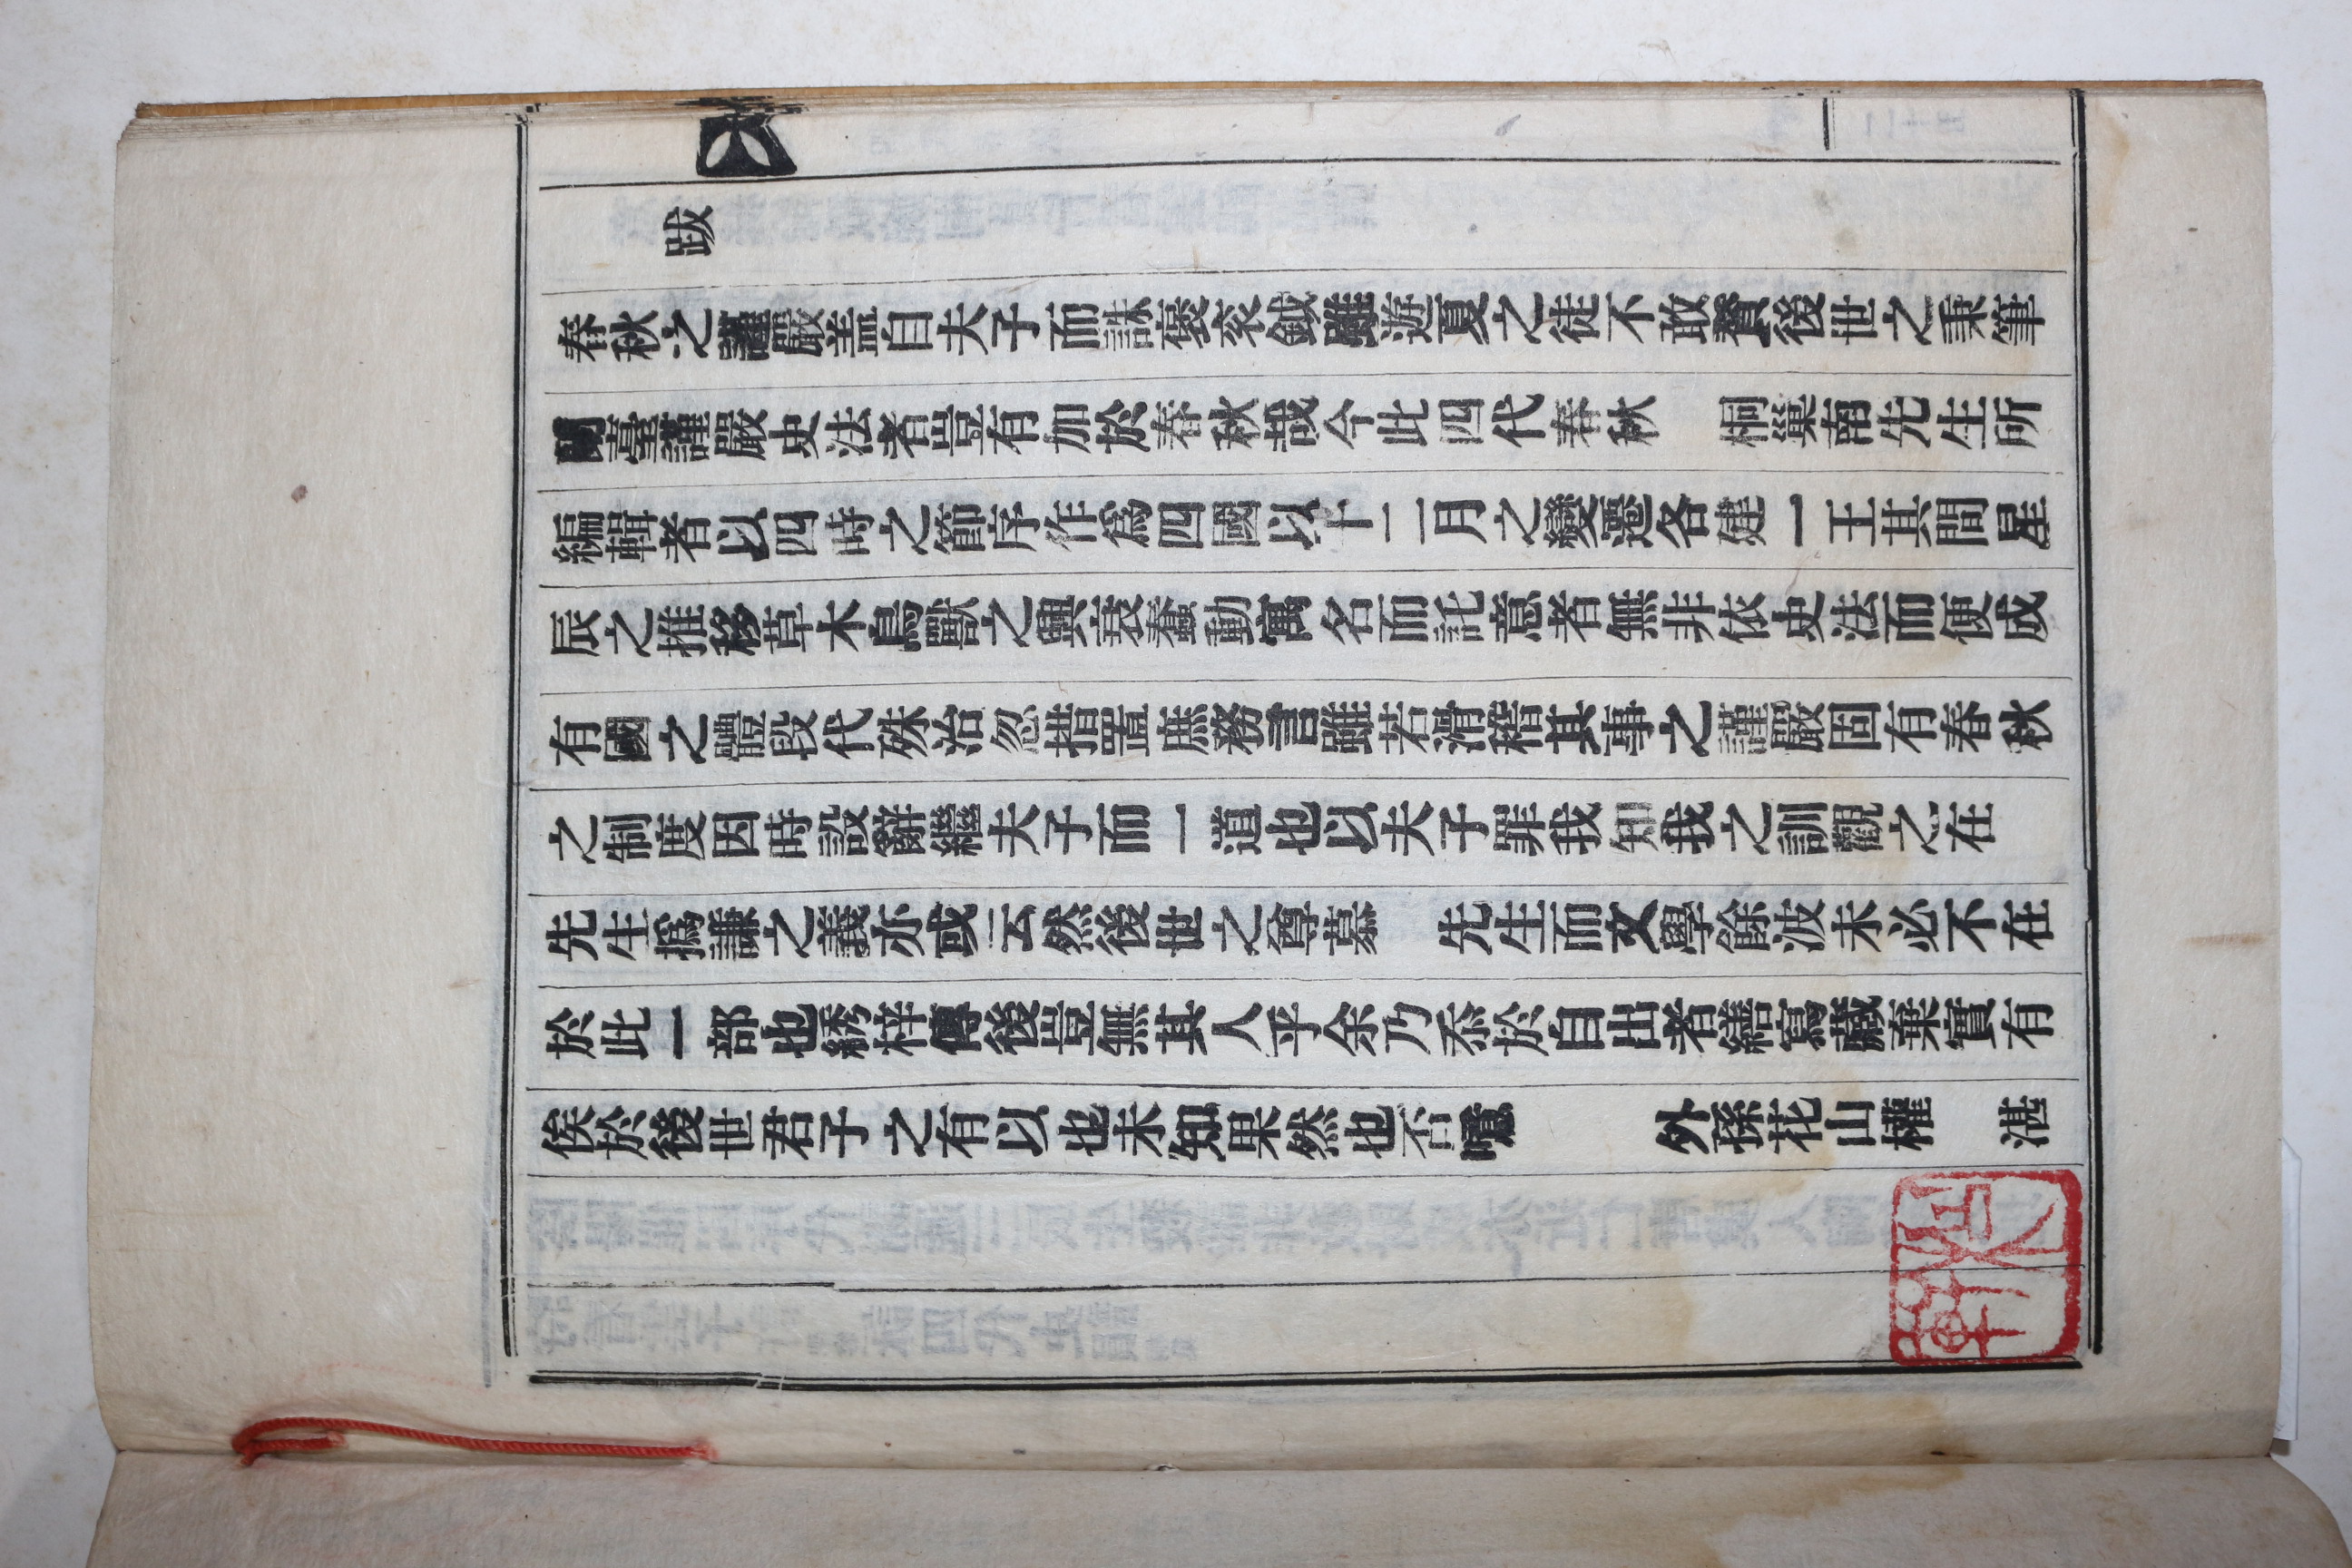 跋
春秋之謹嚴盖自夫子而誅褒衮鉞雖遊夏之徒不敢贊後世之秉筆
蘭臺謹嚴史法者豈有加於春秋哉今此四代春秋　桐巢南先生所
編輯者以四時之節序作爲四國以十二月之變遷各建一王其間星
辰之推移草木鳥獸之興衰蠢動寓名而託意者無非依史法而便成
有國之體段代殊治忽措置庶務言雖若滑稽其事之謹嚴固有春秋
之制度因時設辭繼夫子而一道也以夫子罪我知我之訓觀之在
先生撝謙之義亦或云然後世之尊慕　先生而文學餘波未必不在
於此一部也綉梓傳後豈無其人乎余乃忝於自出者繕寫藏棄實有
俟於後世君子之有以也未知果然也否噫　　外孫花山權　湛